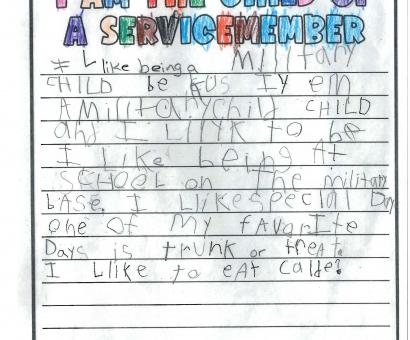 I AM THE CHILD OF
A SERVICEMEMBER
I like being a military
CHILD be KUS IY em
A MilitaryChild CHILD
and I LIYK to be
I Like being At
SCHOOL on The military
bASE. I Llikespecial Day
one of My fAvorIte
Days is trunk or treat.
I Llike to eAt Calde!